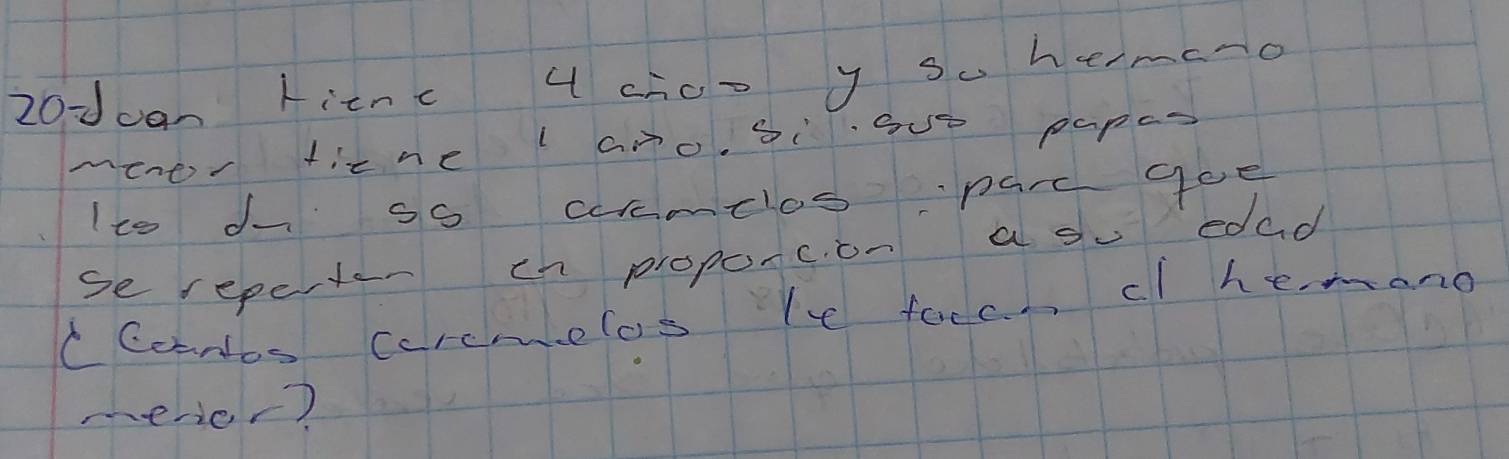 20-Juan tiene 4 años y su hermano
menor tiene 1 año. Si sus papas
les dan 55 caramelos para que
se repartan en proporcion a su edad
¿Cuantos caramelos le tocan al hermano
menor?